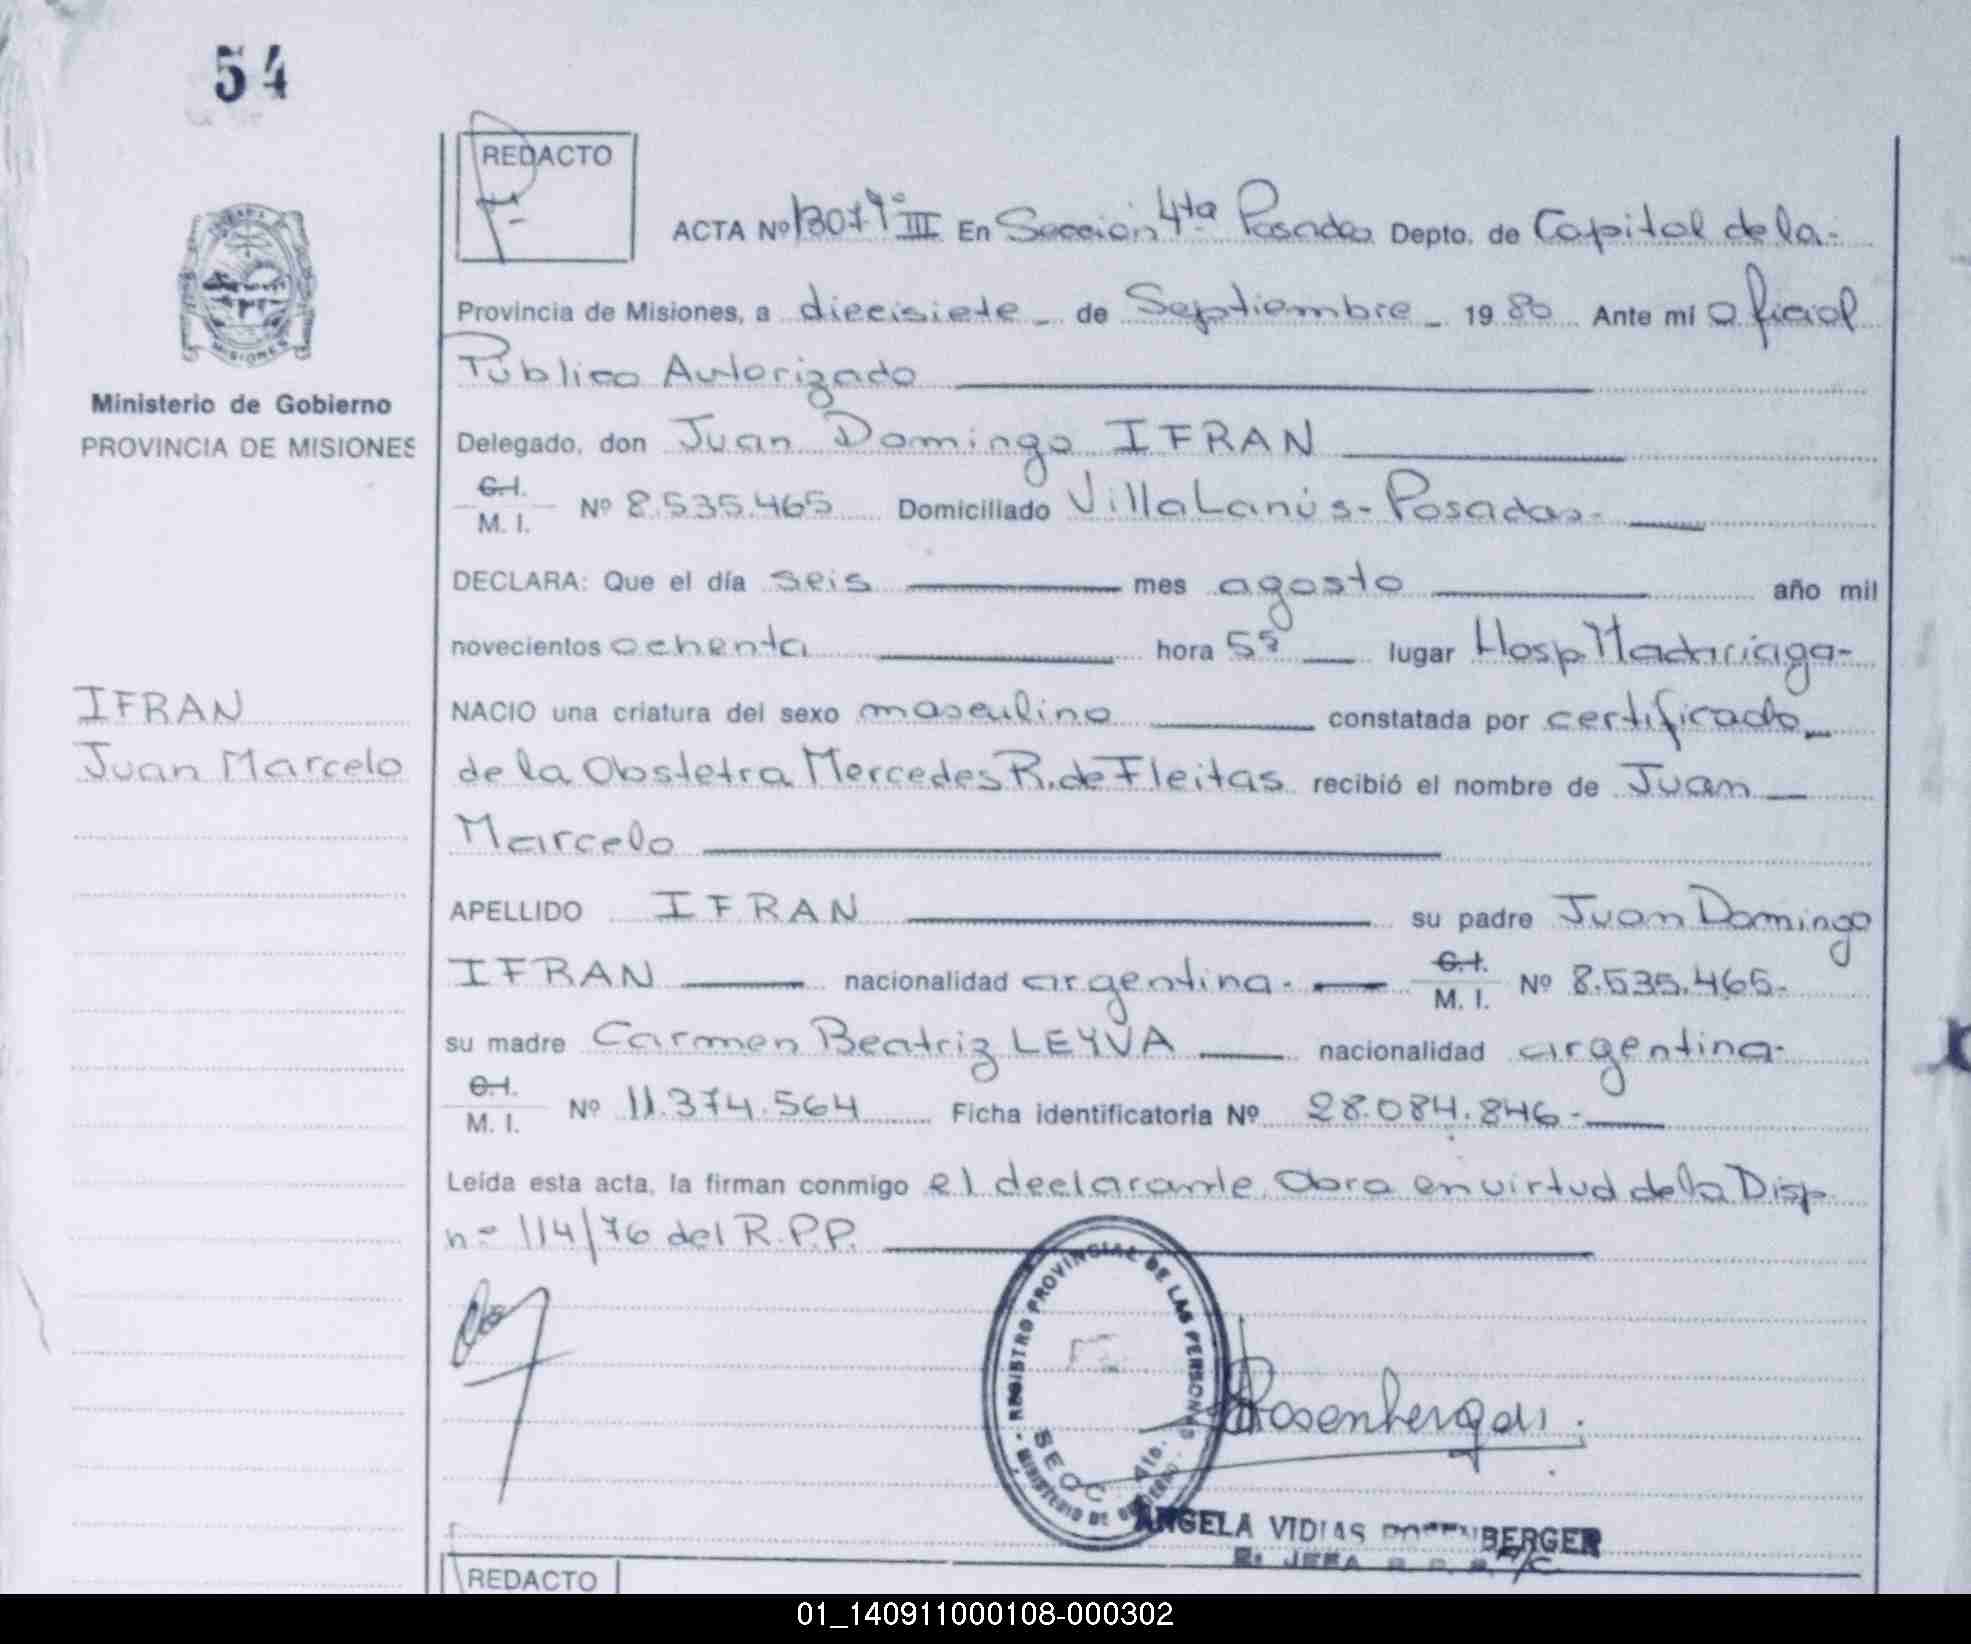 54
REDACTO
ACTA Nº 1307 Tº III En Sección 4ta Posadas Depto. de Capital de la-
Provincia de Misiones, a diecisiete - de Septiembre - 1980 Ante mi Oficial
Público Autorizado
Ministerio de Gobierno
PROVINCIA DE MISIONES
Delegado, don Juan Domingo IFRAN
C.I.
M. I. Nº 8.535.465 Domiciliado Villa Lanús- Posadas-
DECLARA: Que el día seis mes agosto año mil
novecientos ochenta hora 5ª lugar Hosp Madariaga-
IFRAN
Juan Marcelo
NACIO una criatura del sexo masculino constatada por certificado
de la Obstetra Mercedes R. de Fleitas recibió el nombre de Juan
Marcelo
APELLIDO IFRAN su padre Juan Domingo
IFRAN nacionalidad argentina- C.I.
M. I. Nº 8.535.465-
su madre Carmen Beatriz LEYVA nacionalidad argentina-
C.I.
M. I. Nº 11.374.564 Ficha identificatoria Nº 28.084.846-
Leída esta acta, la firman conmigo el declarante. Obra en virtud de la Disp
nº 114/76 del R.P.P.
REGISTRO PROVINCIAL DE LAS PERSONAS
MINISTERIO DE GOBIERNO
SECC 4ta.
ANGELA VIDIAS ROSENBERGER
JEFA
REDACTO
01_140911000108-000302